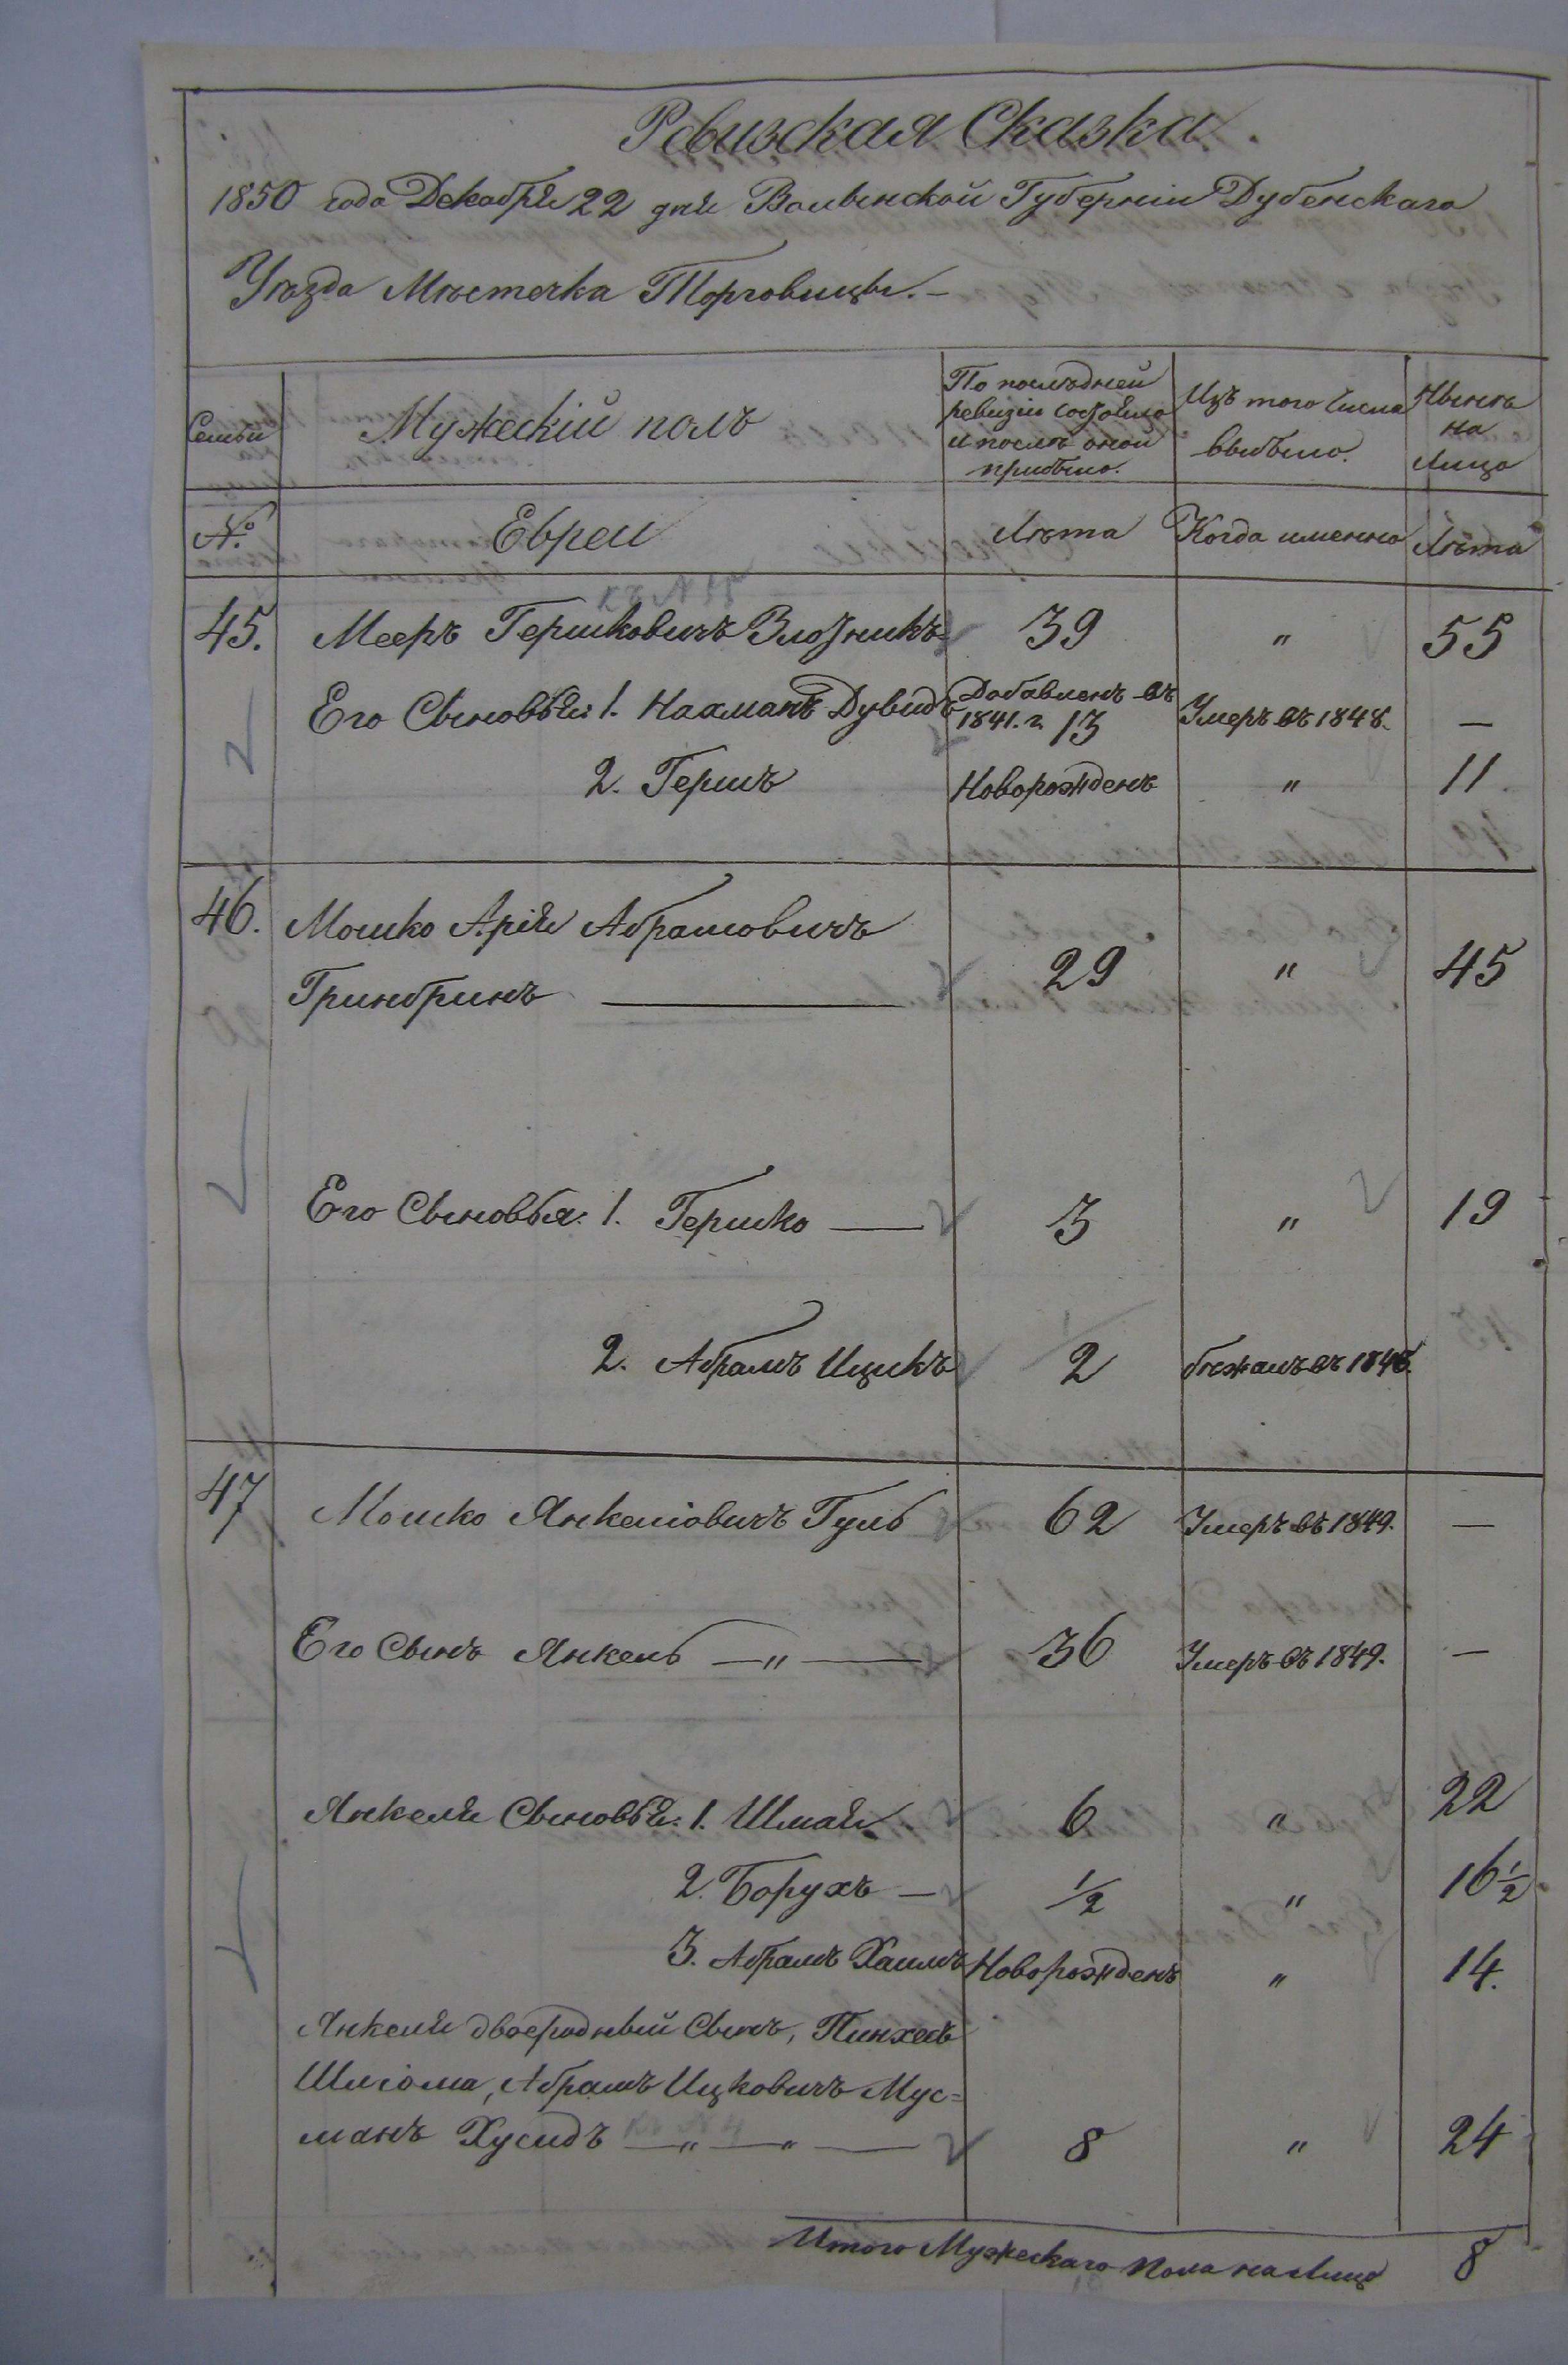 Ревизская Сказка.
1850 года Декабря 22 дня Волынской Губерніи Дубенскаго
Уѣзда Мѣстечка Торговицы.-
Семьи
Мужескій полъ
По послѣдней
ревизіи состояло
и послѣ оной
прибыло.
Изъ того числа
выбыло.
Нынѣ
на
лицо
№.
Евреи
Лѣта
Когда именно
Лѣта
45. Мееръ Гершковичъ Злотникъ 39 " 55
Его Сыновья: 1. Нахманъ Дувидъ Добавленъ въ
1841. г. 13 Умеръ въ 1848. —
2. Гершъ Новорожденъ " 11.
46. Мошко Арія Абрамовичъ
Гринбринъ — 29 " 45
Его Сыновья: 1. Гершко — 3 " 19
2. Абрамъ Ицикъ 1/2 бѣжалъ въ 1846.
47 Мошко Янкеліовичъ Гуль 62 Умеръ въ 1849. —
Его Сынъ Янкель — " — 36 Умеръ въ 1849. —
Янкеля Сыновья: 1. Шмая 6 " 22
2. Борухъ — 1/2 " 16 1/2
3. Абрамъ Хаимъ Новорожденъ " 14.
Янкеля двоеродный Сынъ, Пинхесъ
Шліома, Абрамъ Ицковичъ Мус=
манъ Хусидъ — " — " — 8 " 24
Итого Мужескаго пола на лицо 8